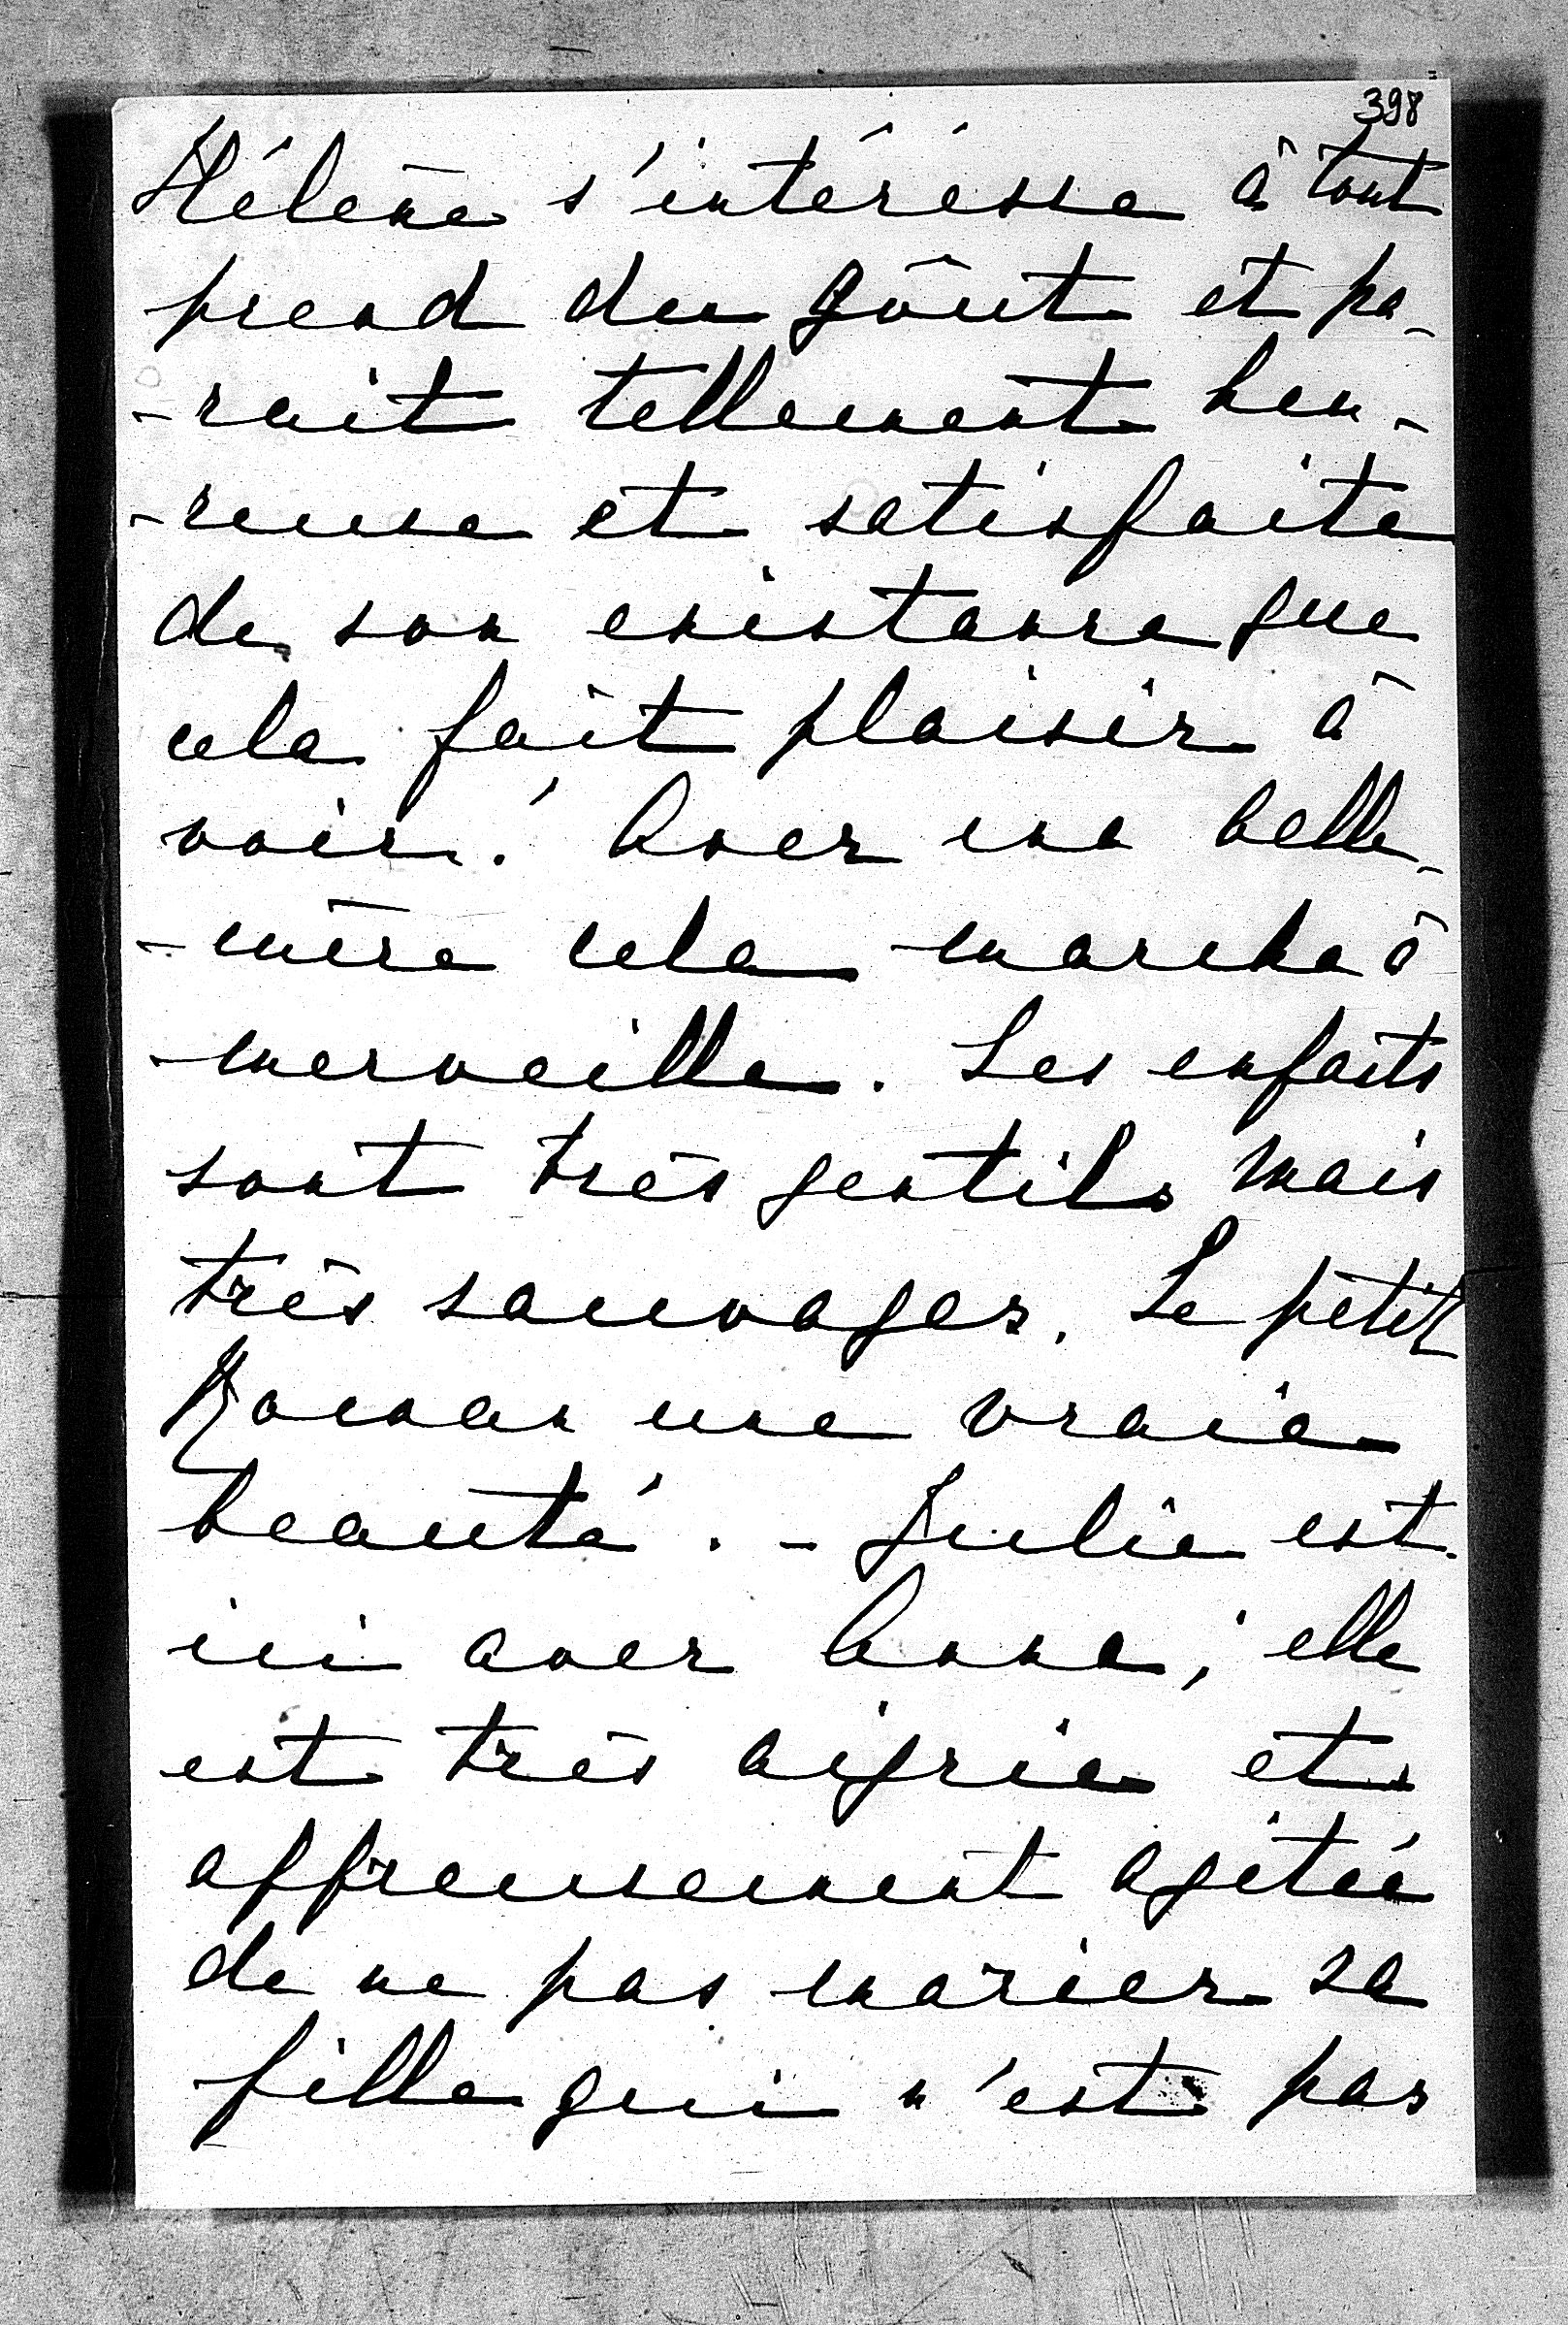 398
Hélène s'intéresse à tout
prend du goût et pa-
-rait tellement heu-
-reuse et satisfaite
de son existance que
cela fait plaisir à
voir! Avec ma belle-
-mère cela marche à
merveille. Les enfants
sont très gentils mais
très sauvages. Le petit
Roman une vraie
beauté. - Julie est
ici avec Anna; elle
est très aigrie et
affreusement agitée
de ne pas marier sa
fille qui n'est pas